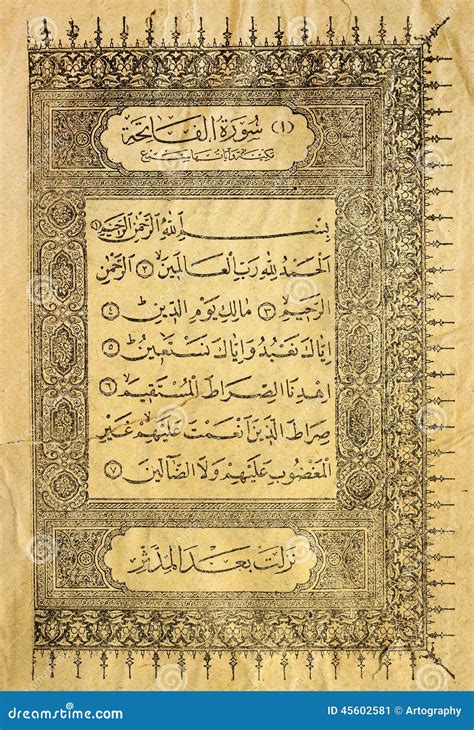 (١) سُورَةُ الفَاتِحَة
مكيّة وآياتها سبع
بِسْمِ اللهِ الرَّحْمٰنِ الرَّحِيمِ ١
اَلْحَمْدُ لِلّٰهِ رَبِّ الْعَالَمِينَ ٢ اَلرَّحْمٰنِ
الرَّحِيمِ ٣ مَالِكِ يَوْمِ الدِّينِ ٤
اِيَّاكَ نَعْبُدُ وَاِيَّاكَ نَسْتَعِينُ ٥
اِهْدِنَا الصِّرَاطَ الْمُسْتَقِيمَ ٦
صِرَاطَ الَّذِينَ اَنْعَمْتَ عَلَيْهِمْ غَيْرِ
الْمَغْضُوبِ عَلَيْهِمْ وَلَا الضَّالِّينَ ٧
نَزَلَتْ بَعْدَ المُدَّثِّر
dreamstime.com
ID 45602581 © Artography